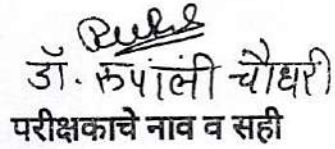 डॉ. रुपाली चौधरी
परीक्षकाचे नाव व सही